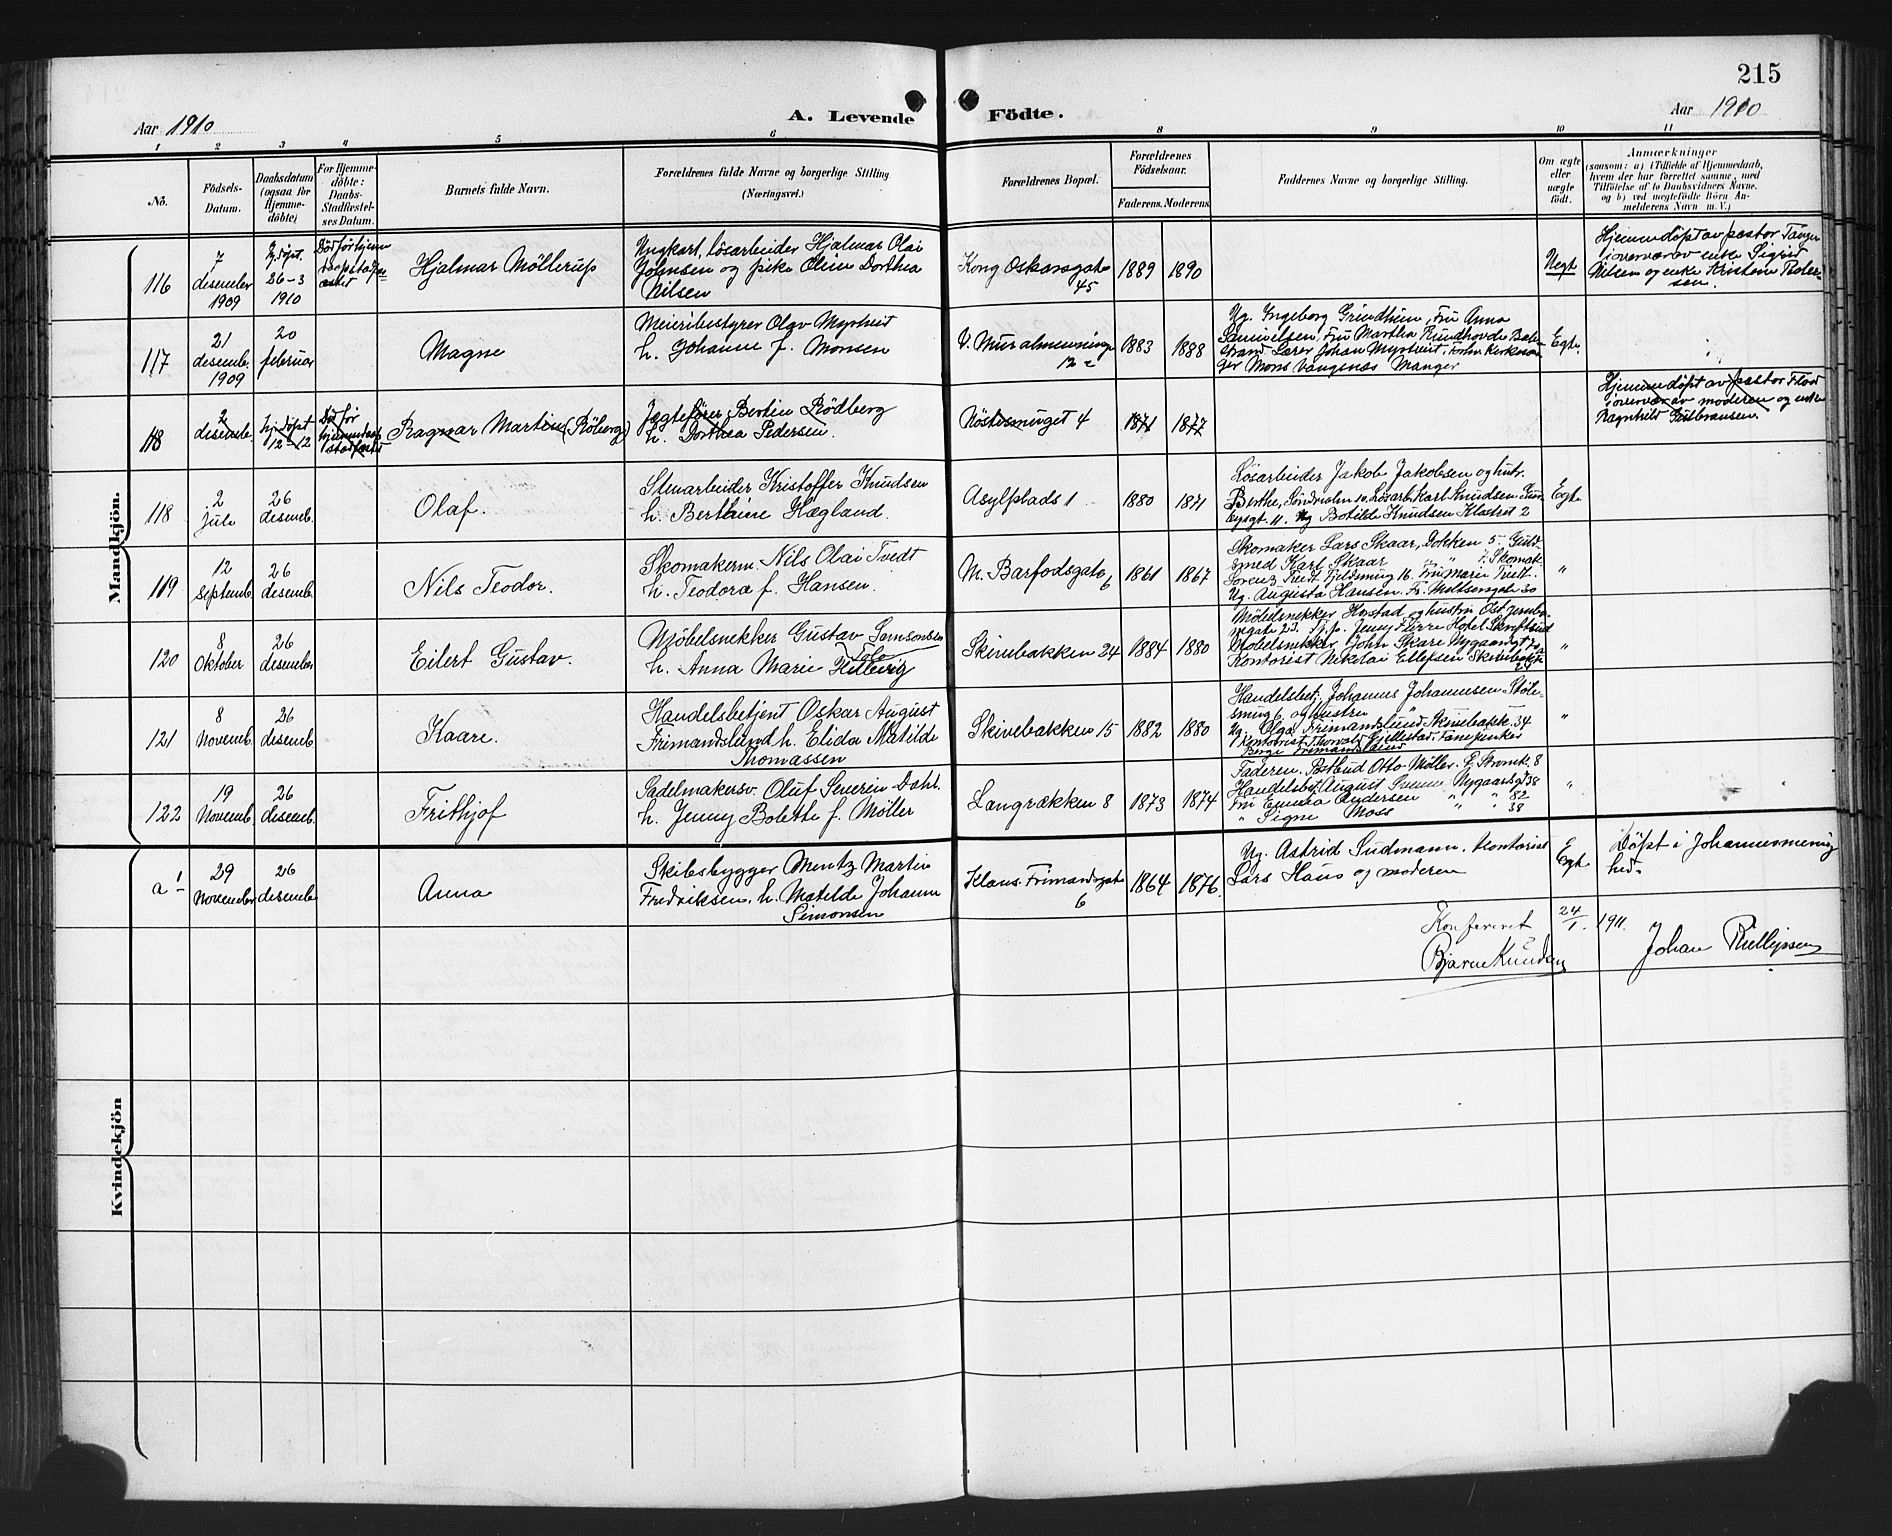 215
Aar 1910
A. Levende Födte.
Aar 1910
1 2 3 4 5 6 8 9 10 11
No. Födsels-Datum. Daabsdatum (ogsaa for Hjemme-döbte) For Hjemme-döbte: Daabs-Stadfæstel-ses Datum. Barnets fulde Navn. Forældrenes fulde Navne og borgerlige Stilling (Næringsvei.) Forældrenes Bopæl. Forældrenes Födselsaar. Faderens. Moderens. Faddernes Navne og borgerlige Stilling. Om ægte eller uægte födt. Anmærkninger
(saasom: a) i Tilfælde af Hjemmedaab,
hvem der har forrettet samme, med
Tilföielse af to Daabsvidners Navne.
og b) ved uægtefödte Börn An-
melderens Navn m. V.)
Mandkjön.
116
7
desember
1909
Hj.döpt
26-3
1910
Död før hjem
Hjalmar Möllerup
Ungkarl, løsarbeider Hjalmar Olai
Johnsen og pike Oline Dorthea
Nilsen
Kong Oskarsgate
45
1889 1890
Uegt
Hjemmedöpt av pastor Tanger
i overvær av enke Sigrid
Nilsen og enke Kristein Peter-
sen.
117
21
desemb.
1909
20
februar
Magne
Meieribestyrer Olav Myrtveit
h. Johanne f. Monsen
V. Muralmenning
12 c
1883 1888
Ug. Ingeborg Grindheim, Fru Anna
Samuelsen, Fru Martha Rundhovde Bale-
strand Lærer Johan Myrtveit, Forh. Kirkesan-
ger Mons Vangsnæs Manger
Egte.
118
2
desemb.
Hj.döpt
12-12
Död før
hjemmedaab
stadfæsted
Ragnar Martin (Röberg)
Jægtefører Bertin Rödberg
h. Dorthea Pedersen.
Nöstesmuget 4
1871 1877
Hjemmedöpt av pastor Flood
i overvær av moderen og enke
Ragnhild Gulbransen.
118
2
Jule
26
desemb.
Olaf.
Stenarbeider Kristoffer Knudsen
h. Berthine Hægland.
Asylplads 1
1880 1871
Løsarbeider Jakob Jakobsen og hustr.
Berthe, Søndreholm 10, Løsarb. Karl Knudsen
11. Ug Botilde Knudsen Klostret 2
Egte
119
12
septemb.
26
desemb.
Nils Teodor.
Skomakerm. Nils Olai Tvedt
h. Teodora f. Hansen.
M. Barfodsgate
6
1861 1867
Skomaker Lars Skaar, Dokken 5. Guld-
smed Karl Skaar " 7. Skomak.
Lorenz Tvedt Fjeldsmug 16. Fru Marie Tvedt.
Ug. Augusta Hansen. Fr. Meltzersgate 30
"
120
8
Oktober
26
desember
Eilert Gustav.
Möbelsnekker Gustav Samsonsen
h. Anna Marie Hillevig
Skivebakken 24
1884 1880
Möbelsnekker Horstad og hustru Ost. Jernba-
negate 23. Frk. Jenny Fürre Hotel
Möbelsnekker John Skare Nygaardsgt
Kontorist Nikolai Ellefsen Skivebak.
24
"
121
8
Novemb.
26
desemb.
Kaare.
Handelsbetjent Oskar August
Frimandslund h. Elida Matilde
Thomassen
Skivebakken 15
1882 1880
Handelsbetj. Johannes Johannesen Støle-
smug 6. og hustru "
Ug. Olga Frimandslund Skivebakk. 34
Kontorist Thorvald Gjellestad, Fanejunker
Børge Frimandslund
"
122
19
Novemb.
26
desemb.
Frithjof
Sadelmakersv. Oluf Severin Dahl.
h. Jenny Bolette f. Möller
Langrækken 8
1873 1874
Faderen. Postbud Otto Möller. 8
Handelsbet. August Nygaardsgt 38
Fru Emma Andersen " " 82
" Signe Moss " " 38
"
Kvindekjön
a 1
29
November
26
desemb.
Anna
Skibsbygger Mentz Martin
Fredriksen. h. Matilde Johanne
Simonsen
Klaus Frimandsgate
6
1864 1876.
Ug. Astrid Sudmann. Kontorist
Lars Haus og moderen
Egte
Döpt i Johannesmenig
hed.
Konfereret 24/1. 1911.
Bjarne Knudsen
Johan Phillipsen